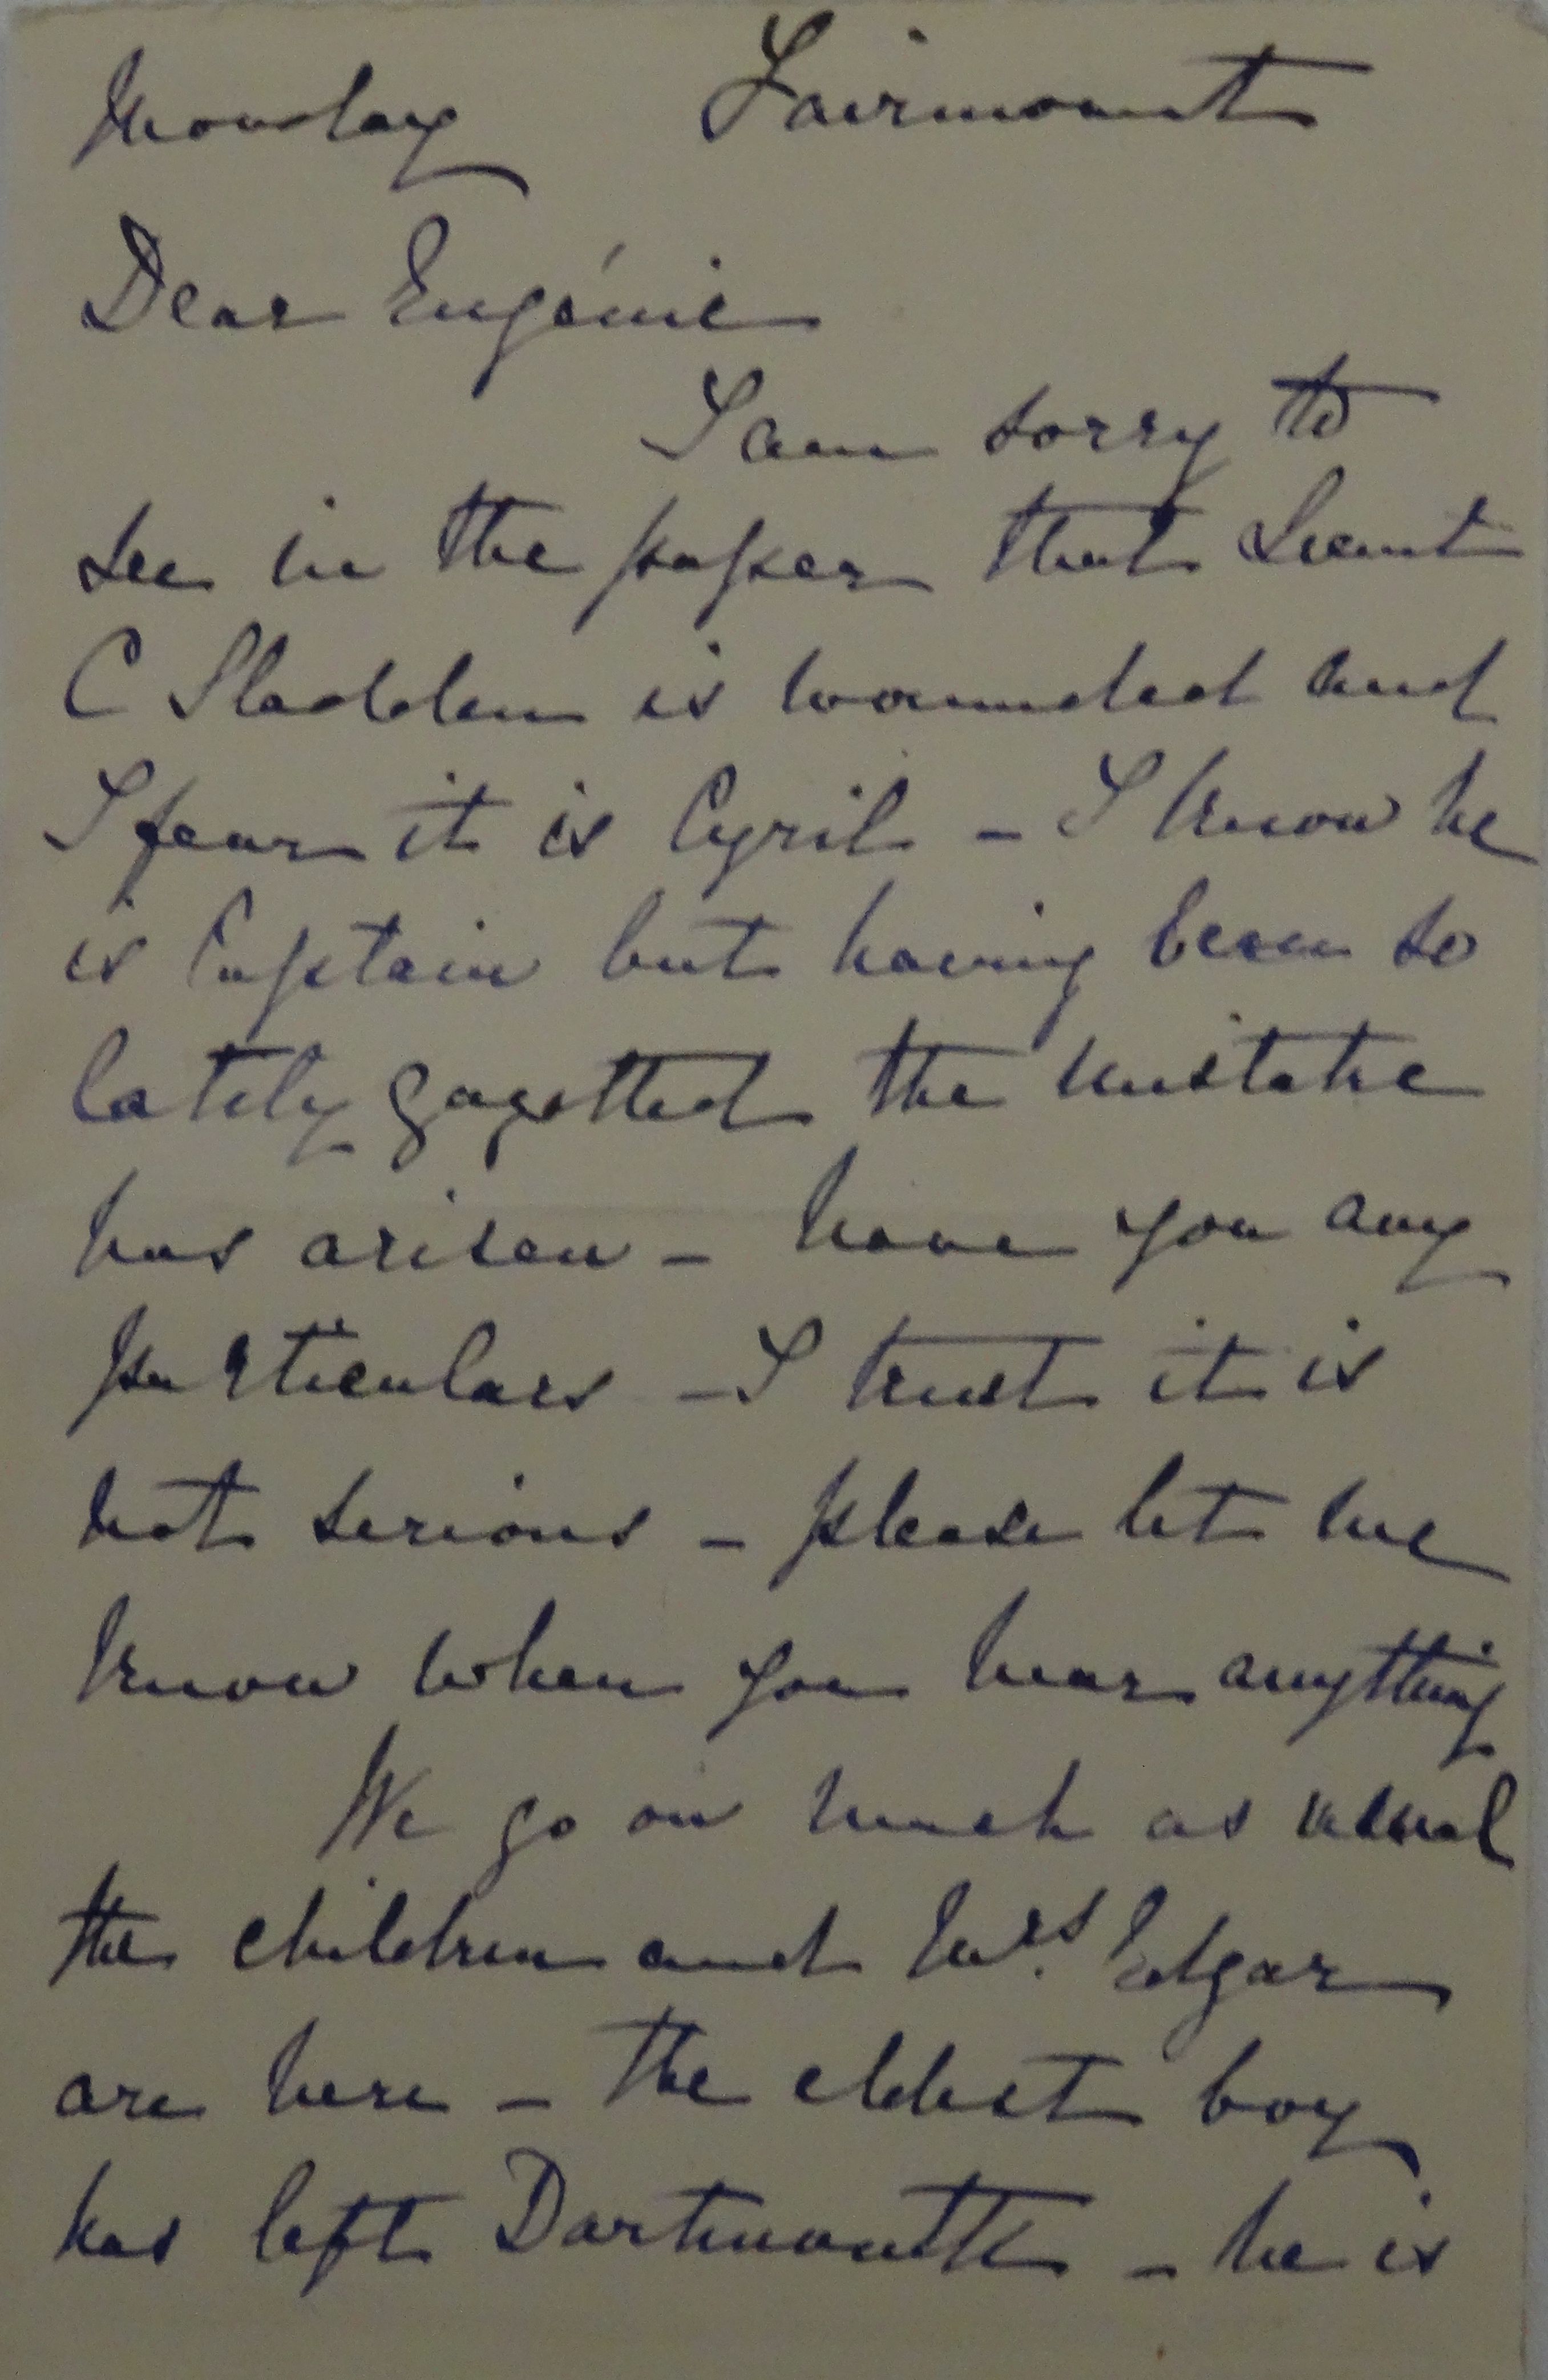 Monday Fairmount
Dear Eugénie
I am sorry to
see in the paper that Lieut
C Sladden is wounded and
I fear it is Cyril – I know he
is Captain but having been so
lately gazetted the mistake
has arisen – have you any
particulars – I trust it is
not serious – please let me
know when you hear anything
We go on much as usual
the children and Mrs. Edgar
are here – the eldest boy
has left Dartmouth – he is